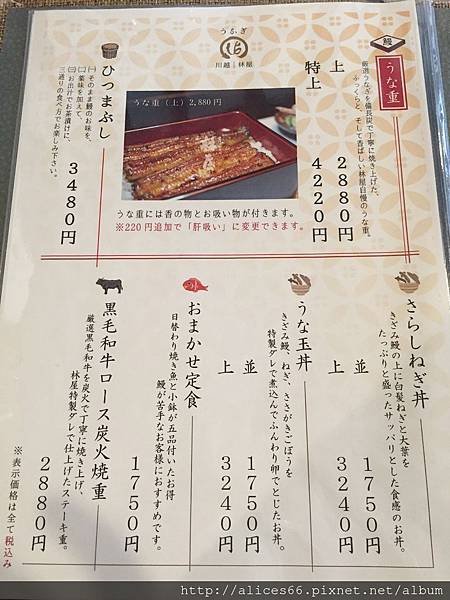 うなぎ
川越 林屋
鰻
うな重
厳選うなぎを備長炭で丁寧に焼き上げた、
ふっくらと、そして香ばしい林屋自慢のうな重。
上 2880円
特上 4220円
うな重（上）2,880円
うな重には香の物とお吸い物が付きます。
※220円追加で「肝吸い」に変更できます。
ひつまぶし
㈠そのまま鰻のお味を、
㈡薬味を加えて、
㈢お出汁でお茶漬けに、
三通りの食べ方でお楽しみ下さい。
3480円
さらしねぎ丼
きざみ鰻の上に白髪ねぎと大葉を
たっぷりと盛ったサッパリとした食感のお丼。
並 1750円
上 3240円
うな玉丼
きざみ鰻、ねぎ、ささがきごぼうを
特製ダレで煮込んでふんわり卵でとじたお丼。
並 1750円
上 3240円
おまかせ定食
日替わり焼き魚と小鉢が五品付いたお得
鰻が苦手なお客様におすすめです。
1750円
黒毛和牛ロース炭火焼重
厳選黒毛和牛を炭火で丁寧に焼き上げ、
林屋特製ダレで仕上げたステーキ重。
2880円
※表示価格は全て税込み
http://alices66.pixnet.net/album